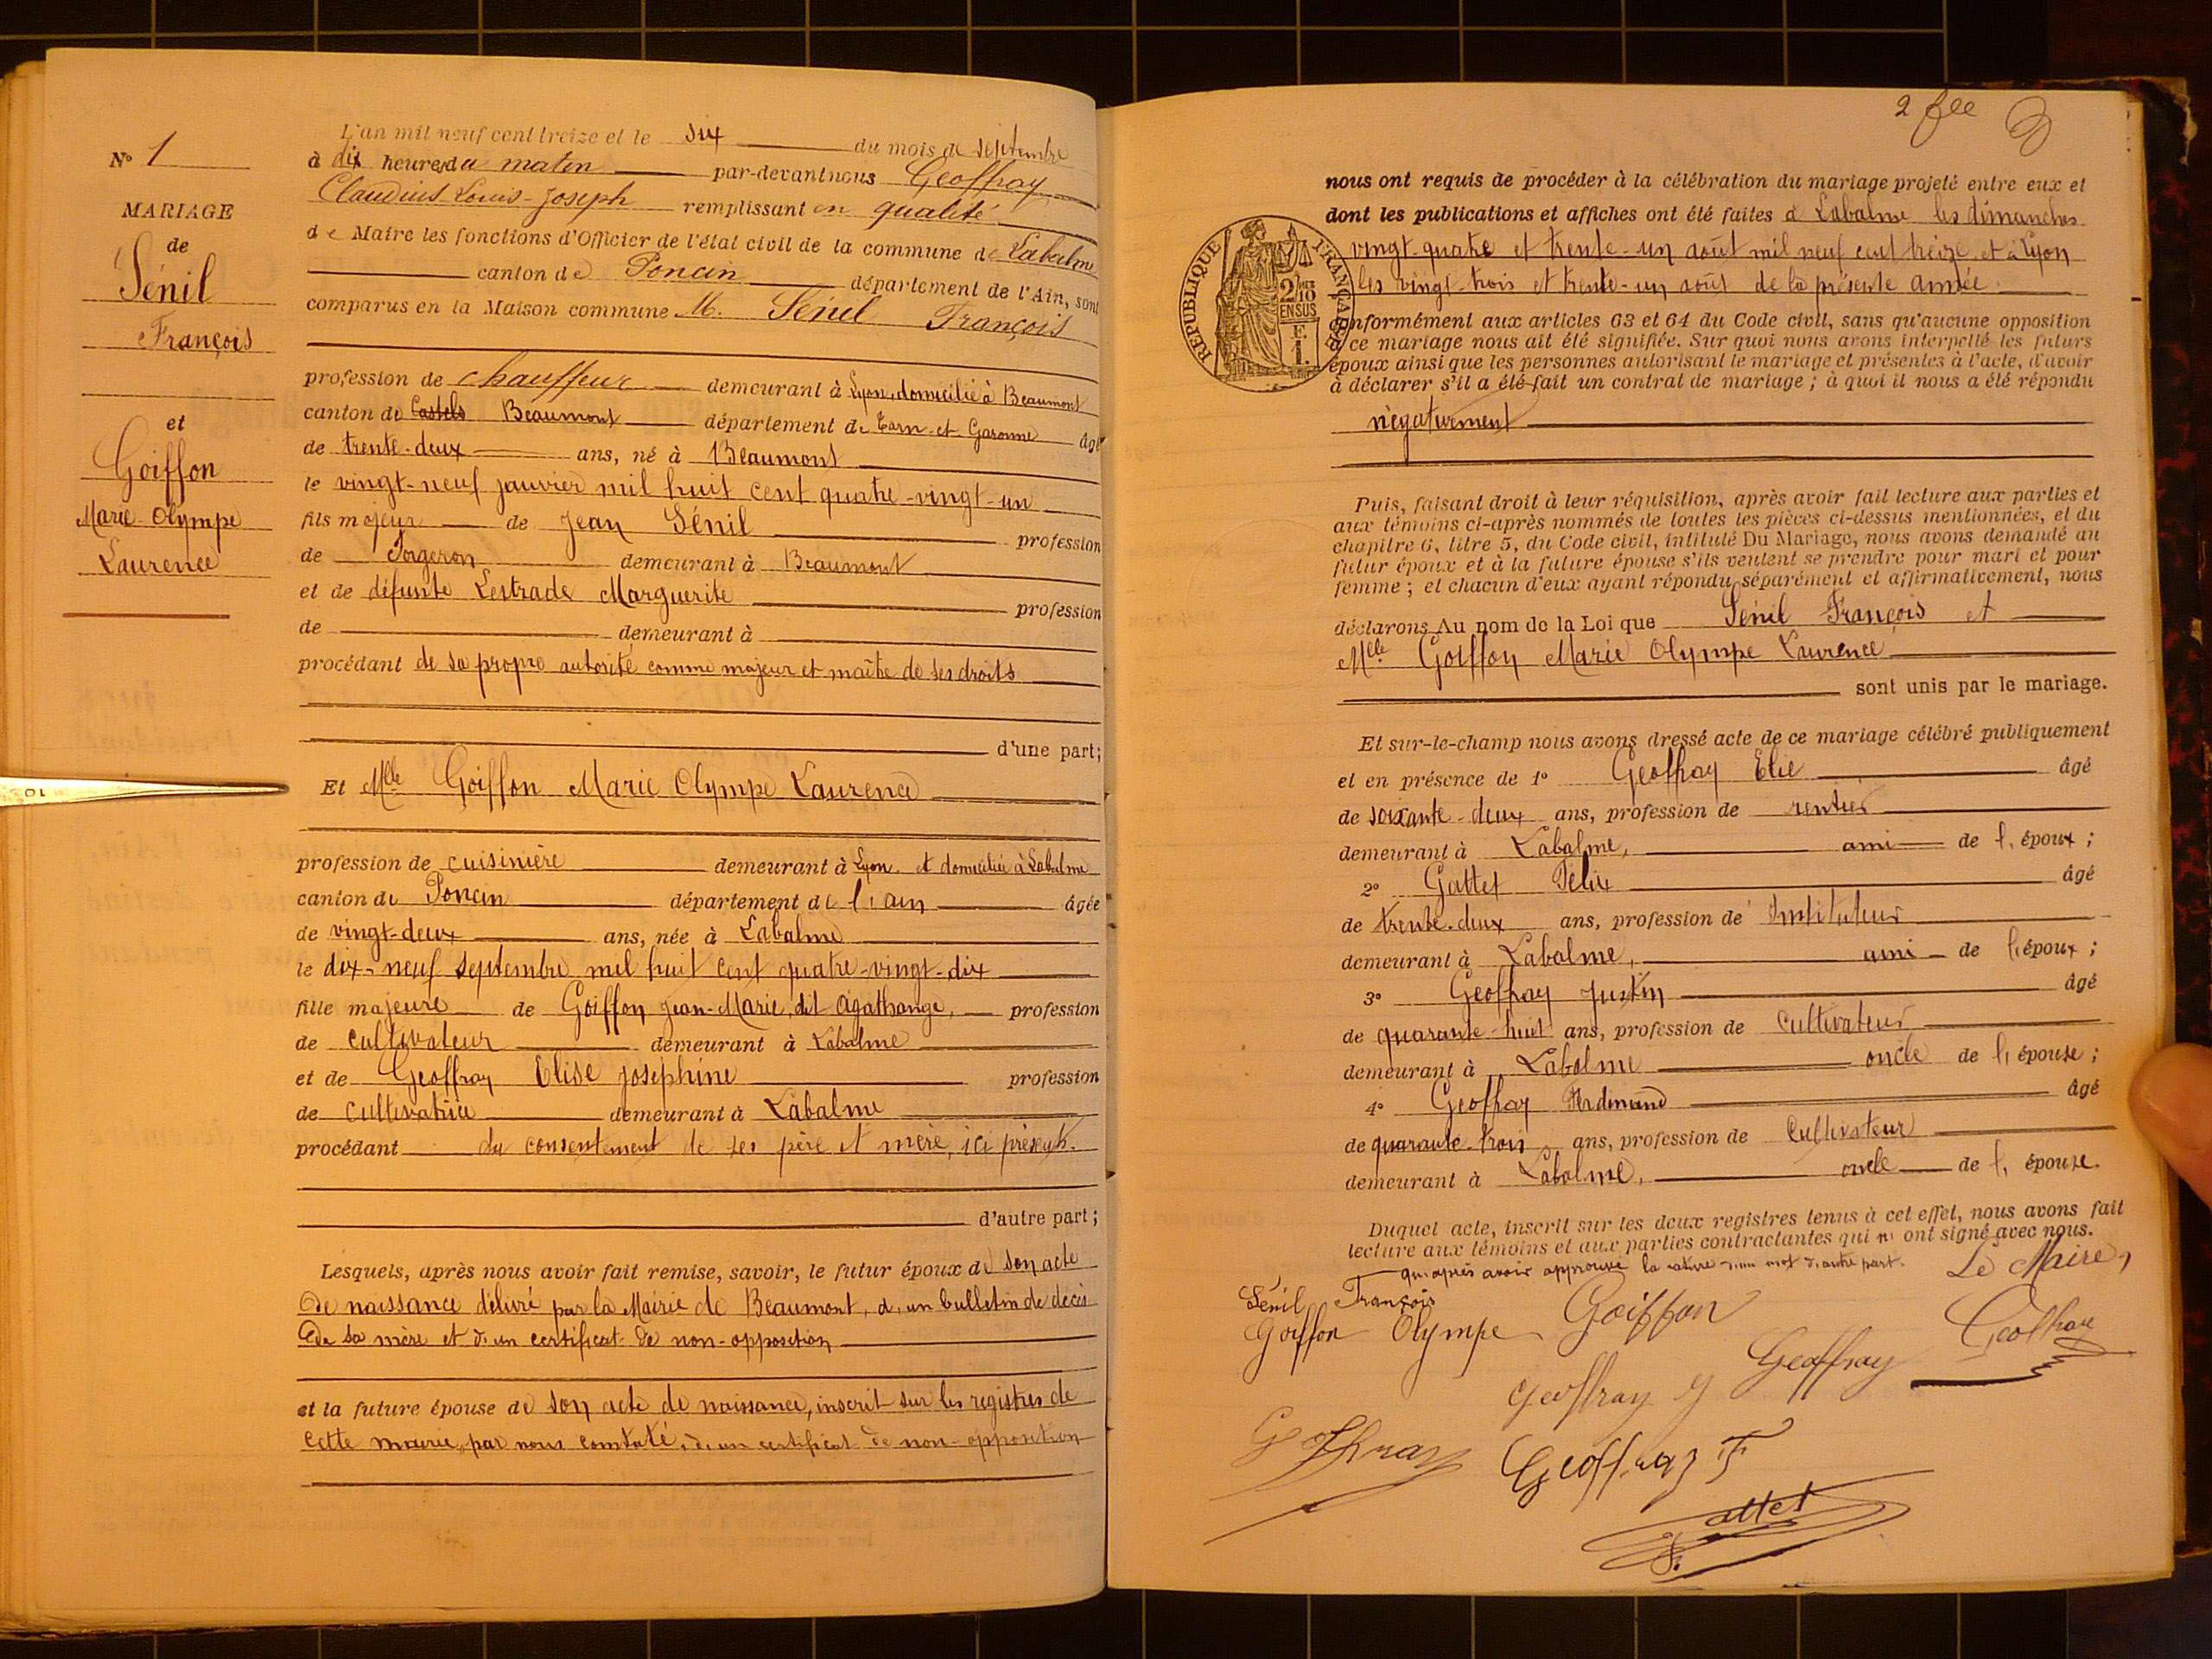 N° 1
MARIAGE
de
Sénil
François
et
Goiffon
Marie Olympe
Laurence
L'an mil neuf cent treize et le six du mois de septembre
à dix heures du matin par-devant nous Geoffray
Claudius Louis-Joseph remplissant en qualité
de Maire les fonctions d'Officier de l'état civil de la commune de Labalme
canton de Poncin département de l'Ain, sont
comparus en la Maison commune M. Sénil François
profession de chauffeur demeurant à Lyon, domicilié à Beaumont
canton de Castels Beaumont département de Tarn-et-Garonne âgé
de trente-deux ans, né à Beaumont
le vingt-neuf janvier mil huit cent quatre-vingt-un
fils majeur de Jean Sénil profession
de forgeron demeurant à Beaumont
et de défunte Lestrade Marguerite profession
de demeurant à
procédant de sa propre autorité comme majeur et maître de ses droits
d'une part;
Et Mlle Goiffon Marie Olympe Laurence
profession de cuisinière demeurant à Lyon et domiciliée à Labalme
canton de Poncin département de l'ain âgée
de vingt-deux ans, née à Labalme
le dix-neuf septembre mil huit cent quatre-vingt-dix
fille majeure de Goiffon Jean-Marie, dit Agathange, profession
de cultivateur demeurant à Labalme
et de Geoffray Elise Joséphine profession
de cultivatrice demeurant à Labalme
procédant du consentement de ses père et mère, ici présents.
d'autre part;
Lesquels, après nous avoir fait remise, savoir, le futur époux de son acte
de naissance délivré par la Mairie de Beaumont, d'un bulletin de décès
de sa mère et d'un certificat de non-opposition
et la future épouse de son acte de naissance, inscrit sur les registres de
cette mairie, par nous constaté, d'un certificat de non-opposition
2 fle
nous ont requis de procéder à la célébration du mariage projeté entre eux et
dont les publications et affiches ont été faites à Labalme les dimanches
vingt-quatre et trente-un août mil neuf cent treize et à Lyon
les vingt-trois et trente-un août de la présente année
RÉPUBLIQUE FRANÇAISE
2/10
EN SUS
F
1.
conformément aux articles 63 et 64 du Code civil, sans qu'aucune opposition
à ce mariage nous ait été signifiée. Sur quoi nous avons interpellé les futurs
époux ainsi que les personnes autorisant le mariage et présentes à l'acte, d'avoir
à déclarer s'il a été fait un contrat de mariage; à quoi il nous a été répondu
négativement
Puis, faisant droit à leur réquisition, après avoir fait lecture aux parties et
aux témoins ci-après nommés de toutes les pièces ci-dessus mentionnées, et du
chapitre 6, titre 5, du Code civil, intitulé Du Mariage, nous avons demandé au
futur époux et à la future épouse s'ils veulent se prendre pour mari et pour
femme; et chacun d'eux ayant répondu séparément et affirmativement, nous
déclarons Au nom de la Loi que Sénil François et
Mlle Goiffon Marie Olympe Laurence
sont unis par le mariage.
Et sur-le-champ nous avons dressé acte de ce mariage célébré publiquement
et en présence de 1° Geoffray Elie âgé
de soixante-deux ans, profession de rentier
demeurant à Labalme, ami de l'époux;
2° Gattet Félix âgé
de trente-deux ans, profession de Instituteur
demeurant à Labalme, ami de l'époux;
3° Geoffray Justin âgé
de quarante-huit ans, profession de cultivateur
demeurant à Labalme oncle de l'épouse;
4° Geoffray Ferdinand âgé
de quarante-trois ans, profession de cultivateur
demeurant à Labalme, oncle de l'épouse.
Duquel acte, inscrit sur les deux registres tenus à cet effet, nous avons fait
lecture aux témoins et aux parties contractantes qui ont signé avec nous.
qu'après avoir approuvé la rature d'un mot d'autre part.
Le Maire,
Sénil François
Goiffon Olympe Goiffon Geoffray
Geoffray J Geoffray
Geoffray Geoffray F
Gattet